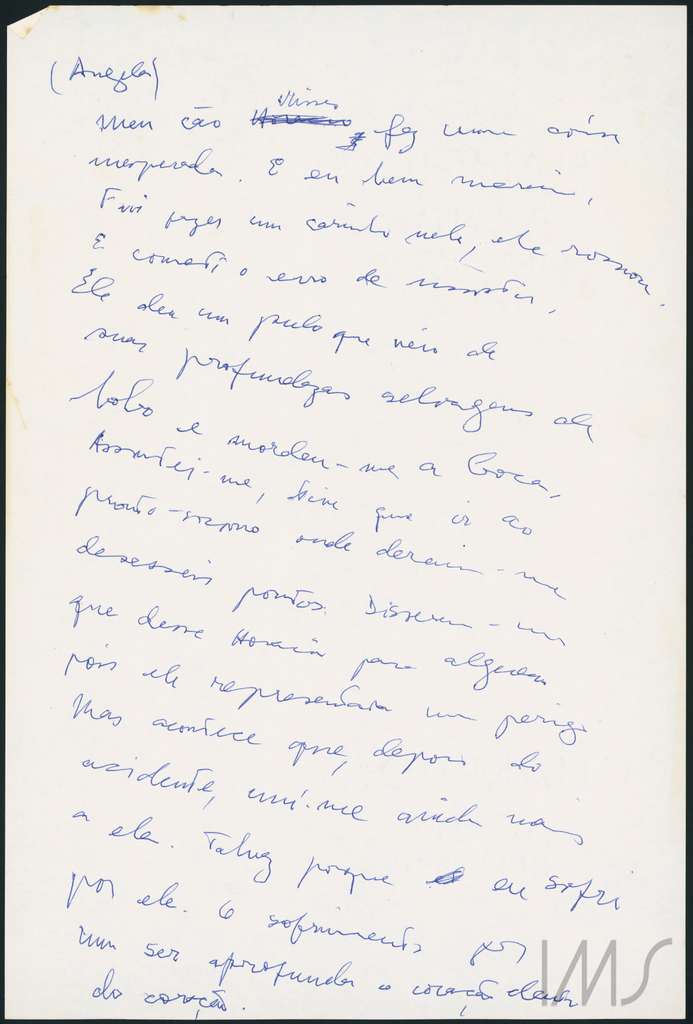 (Angela)
Ulisses
Meu cão Horacio fez uma coisa
inesperada. E eu bem mereci.
Fui fazer um carinho nele, ele rosnou.
E cometi o erro de insistir.
Ele deu um pulo que veio de
suas profundezas selvagens de
lobo e mordeu-me a boca.
Assustei-me, tive que ir ao
pronto-socorro onde deram-me
dezesseis pontos. Disseram-me
que desse Horacio para alguem
pois ele representava um perigo
Mas acontece que, depois do
acidente, uni-me ainda mais
a ele. Talvez porque eu sofri
por ele. O sofrimento por
um ser aprofunda o coração dentro
do coração.
IMS